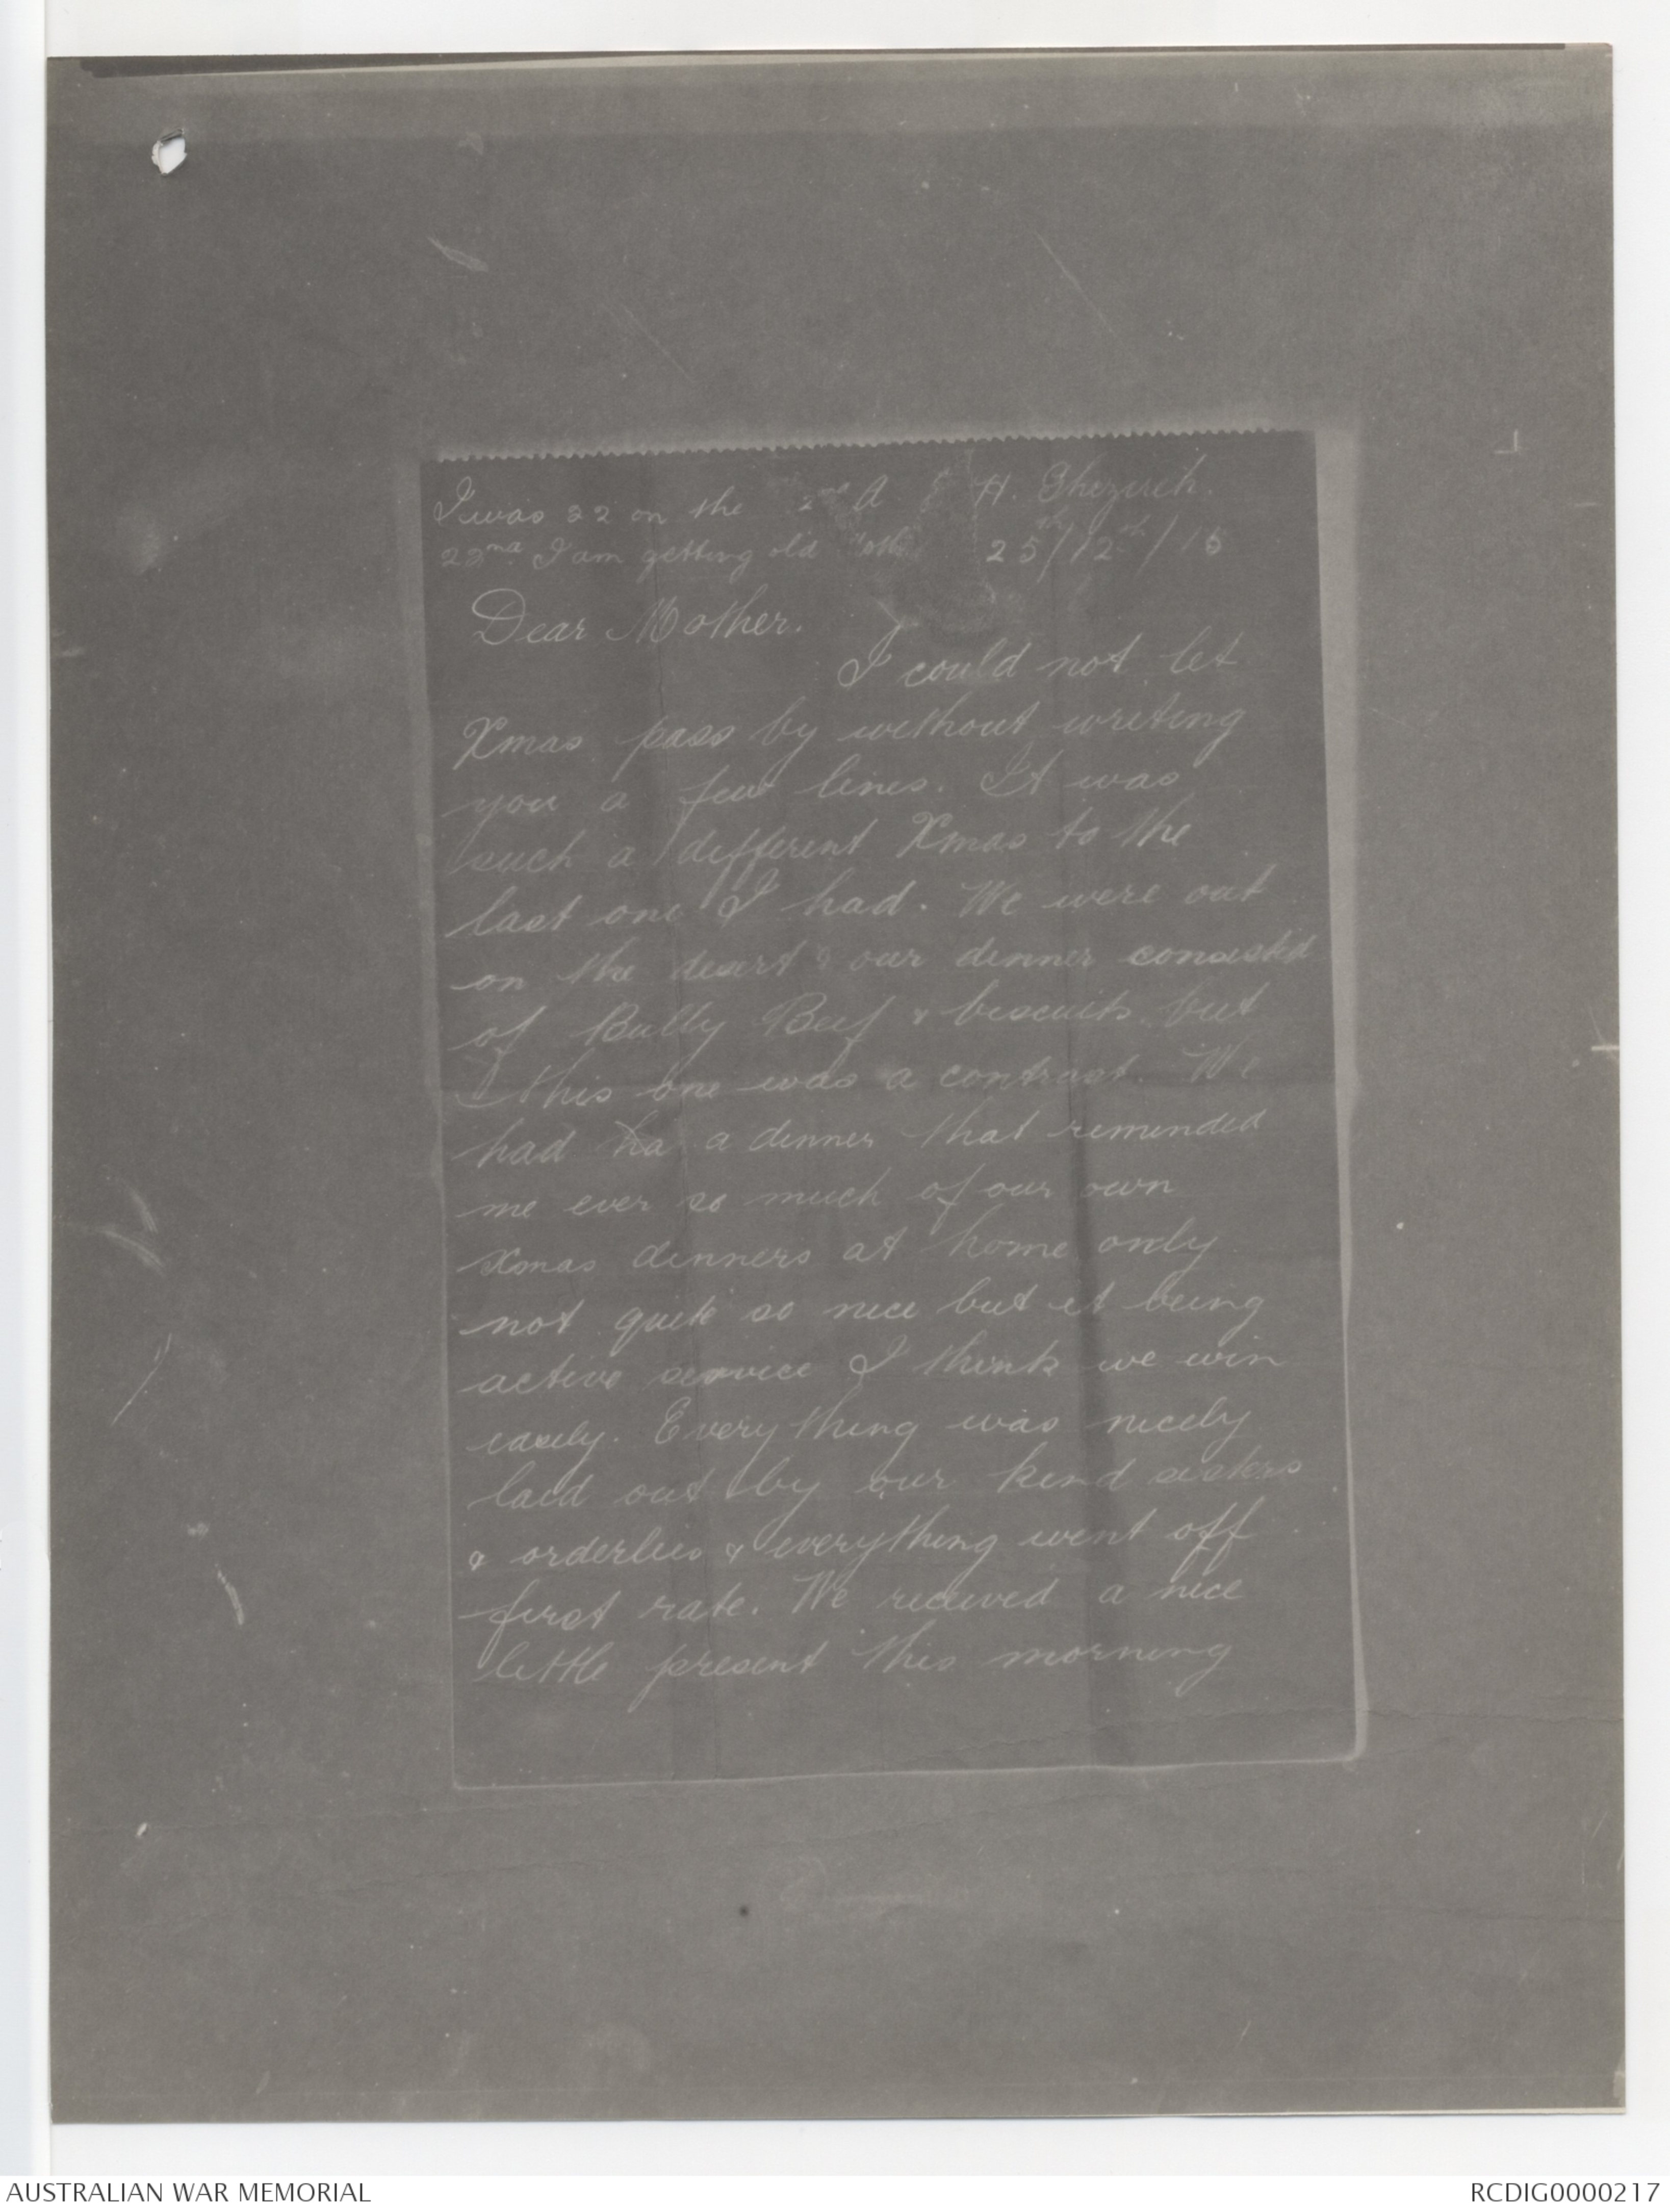 I was 22 on the 2nd A G H. Ghezireh.
22nd. I am getting old 25th/12th/15
Dear Mother.
I could not let
Xmas pass by without writing
you a few lines. It was
such a different Xmas to the
last one I had. We were out
on the desert & our dinner consisted
of Bully Beef & biscuits but
this one was a contrast. We
had ha a dinner that reminded
me ever so much of our own
Xmas dinners at home only
not quite so nice but it being
active service I think we win
easily. Everything was nicely
laid out by our kind sisters
& orderlies & everything went off
first rate. We received a nice
little present this morning
AUSTRALIAN WAR MEMORIAL
RCDIG0000217